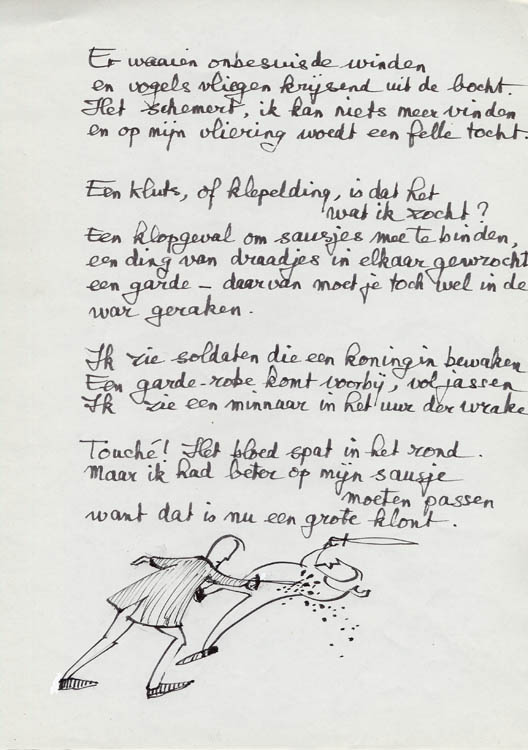 Er waaien onbesuisde winden
en vogels vliegen krijsend uit de bocht.
Het schemert, ik kan niets meer vinden
en op mijn vliering woedt een felle tocht.
Een kluts, of klepelding, is dat het
wat ik zocht?
Een klopgeval om sausjes mee te binden,
een ding van draadjes in elkaar gewrocht
een garde – daarvan moet je toch wel in de
war geraken.
Ik zie soldaten die een koningin bewaken
Een garde-robe komt voorbij, vol jassen
Ik zie een minnaar in het uur der wrake
Touché! Het bloed spat in het rond.
Maar ik had beter op mijn sausje
moeten passen
want dat is nu een grote klont.